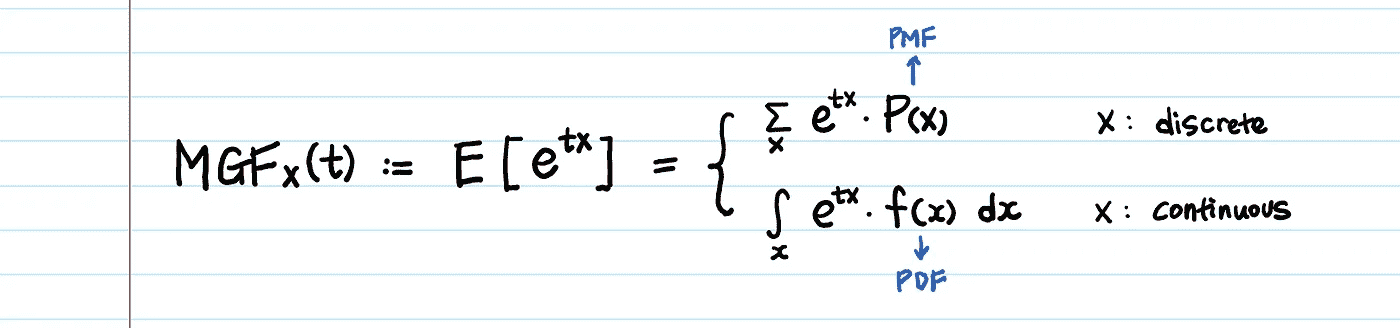 PMF
↑
MGFₓ(t) := E[eᵗˣ] = {
∑ₓ eᵗˣ · P(x) x : discrete
∫ₓ eᵗˣ · f(x) dx x : continuous
↓
PDF